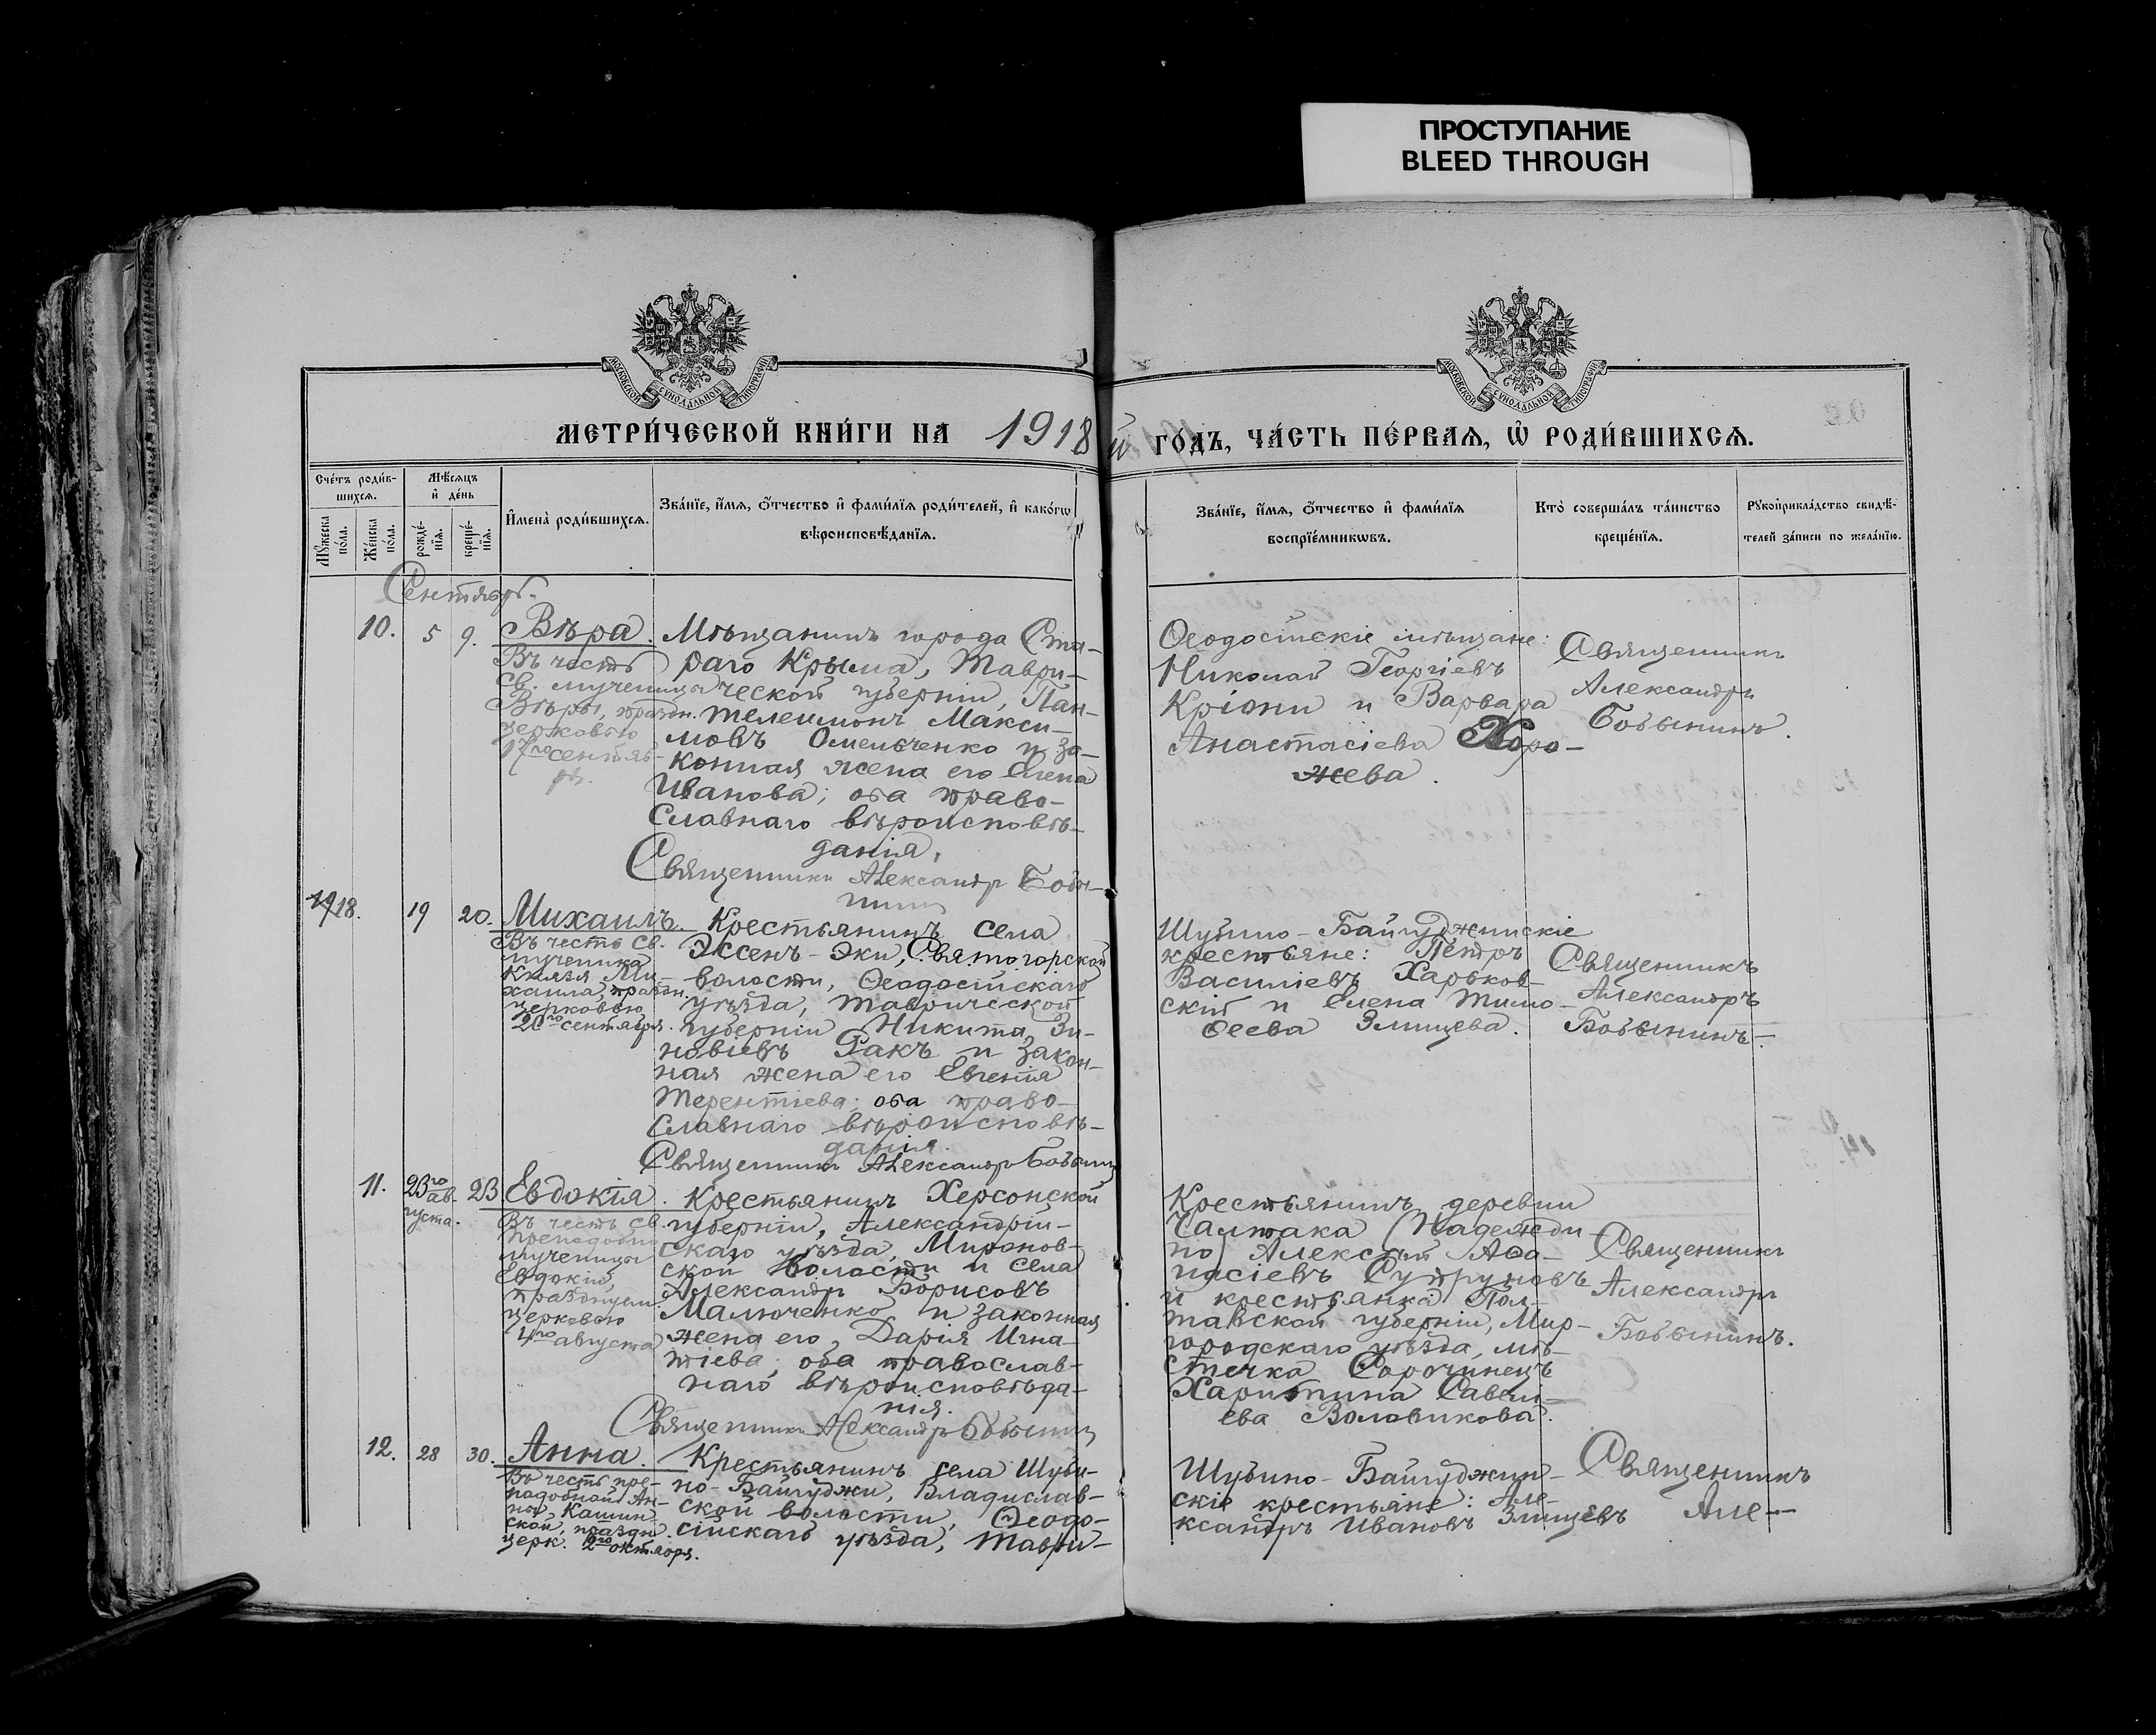 ПРОСТУПАНИЕ
BLEED THROUGH
МОСКОВСКОЙ СѴНОДАЛЬНОЙ ТИПОГРАФІИ
МОСКОВСКОЙ СѴНОДАЛЬНОЙ ТИПОГРАФІИ
МЕТРИ́ЧЕСКОЙ КНИ́ГИ НА 1918 й ГО́ДЪ, ЧА́СТЬ ПЕ́РВАѦ, Ѽ РОДИ́ВШИХСѦ.
Сче́тъ роди́в-
шихсѧ.
Мѣ́сяцъ
и҆ де́нь
Мꙋ́жеска по́ла.
Же́нска по́ла.
рожде́-
нїѧ.
креще́-
нїѧ.
И҆мена̀ роди́вшихсѧ.
Зва́нїе, и҆́мѧ, ѻ҆́тчество и҆ фами́лїѧ роди́телей, и҆ како́гѡ
вѣроисповѣ́данїѧ.
Зва́нїе, и҆́мѧ, ѻ҆́тчество и҆ фами́лїѧ
воспрїе́мникѡвъ.
Кто̀ соверша́лъ та́инство
креще́нїѧ.
Рꙋкоприкла́дство свидѣ́-
телей за́писи по жела́нїю.
Сентябрь.
10. 5 9.
Вѣра.
Въ честь
св. мученицы
Вѣры, праздн.
церковью
17го сентяб-
ря.
Мѣщанинъ города Ста-
раго Крыма, Таври-
ческой губерніи, Пан-
телеимонъ Макси-
мовъ Омельченко и за-
конная жена его Елена
Иванова; оба право-
славнаго вѣроисповѣ-
данія.
Священникъ Александръ Бобы-
нинъ
Ѳеодосійскіе мѣщане:
Николай Георгіевъ
Кріони и Варвара
Анастасіева Хоро-
жева.
Священникъ
Александръ
Бобынинъ.
18. 19 20.
Михаилъ.
Въ честь св.
мученика
Князя Ми-
хаила, праздн.
церковью
20го сентября.
Крестьянинъ села
Эссенъ-Эки, Святогорской
волости, Ѳеодосійскаго
уѣзда, Таврической
губерніи Никита Зи-
новіевъ Ракъ и закон-
ная жена его Евгенія
Терентіева; оба право-
славнаго вѣроисповѣ-
данія.
Священникъ Александръ Бобынинъ
Шубино-Байгуджинскіе
крестьяне: Петръ
Василіевъ Харьков-
скій и Елена Тимо-
ѳеева Змищева.
Священникъ
Александръ
Бобынинъ.
11. 23го ав-
густа. 23
Евдокія.
Въ честь св.
Преподобно
мученицы
Евдокіи,
празднуем.
церковью
4го августа
Крестьянинъ Херсонской
губерніи, Александрій-
скаго уѣзда, Миронов-
ской волости и села
Александръ Борисовъ
Малюченко и законная
жена его, Дарія Игна-
тіева; оба православ-
наго вѣроисповѣда-
нія.
Священникъ Александръ Бобынинъ
Крестьянинъ деревни
Салтака (Надежди-
но) Алексѣй Аѳа-
насіевъ Супруновъ
и крестьянка Пол-
тавской губерніи, Мир-
городскаго уѣзда, мѣ-
стечка Сорочинецъ
Харитина Савель-
ева Воловикова.
Священникъ
Александръ
Бобынинъ.
12. 28 30.
Анна.
Въ честь пре-
подобной Ан-
ны Кашин-
ской, праздн.
церк. 2го октября.
Крестьянинъ села Шуби-
но-Байгуджи, Владислав-
ской волости, Ѳеодо-
сійскаго уѣзда, Таври-
Шубино-Байгуджин-
скіе крестьяне: Але-
ксандръ Ивановъ Змищевъ
Священникъ
Але-